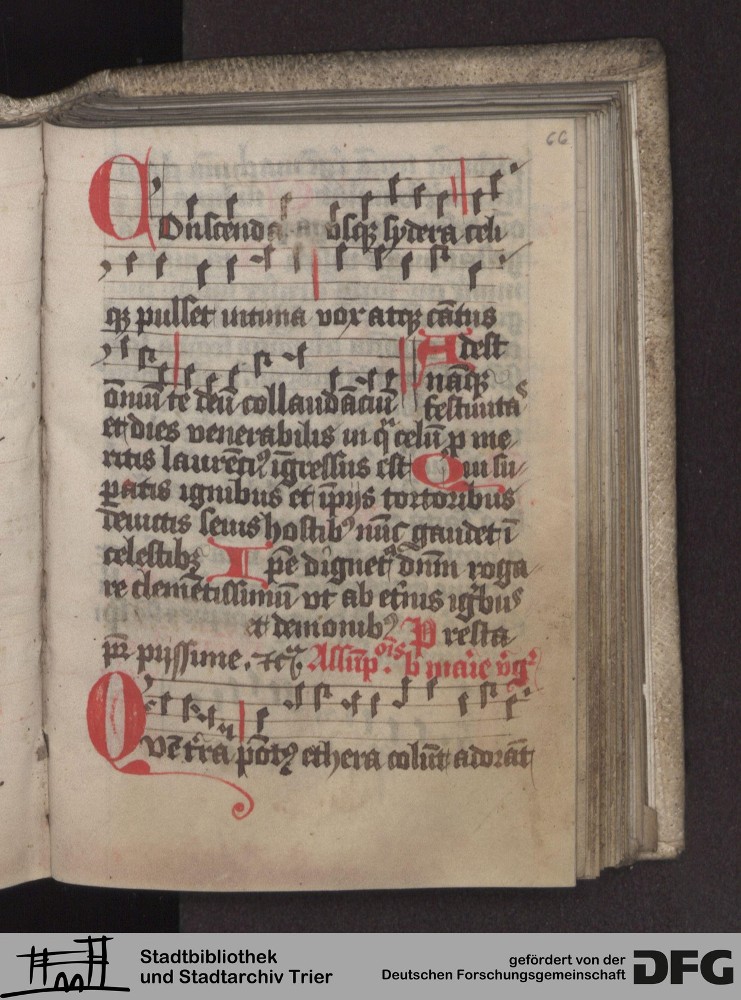 66
Conscendat usq₃ sydera celi
q₃ pulset intima vox atq₃ cātus
Adest
nāq₃
ōniū te deū collaudāciū festiuita
et dies venerabilis in q celū p me
ritis laurēti9 īgressus est Qui su
patis ignibus et ip̄ijs tortoribus
deuictis seuis hostib9 nūc gaudet ī
celestib₃ Ipē dignet dn̄m roga
re clemētissimū vt ab et̄nis iḡbus
et demonib9 Presta
pr̄ pijssime. ⁊c̄ Assūpcōis b marie v̄g
Quē t̄ra pōt9 ethera colūt adorāt
Stadtbibliothek
und Stadtarchiv Trier
gefördert von der
Deutschen Forschungsgemeinschaft DFG